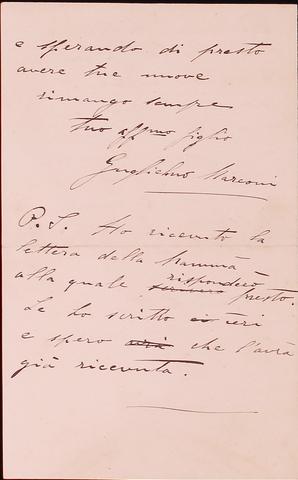 e sperando di presto
avere tue nuove
rimango sempre
tuo affmo figlio
Guglielmo Marconi
P.S. Ho ricevuto la
lettera della Mammà
alla quale risponderò presto.
Le ho scritto ieri
e spero che l'avrà
già ricevuta.